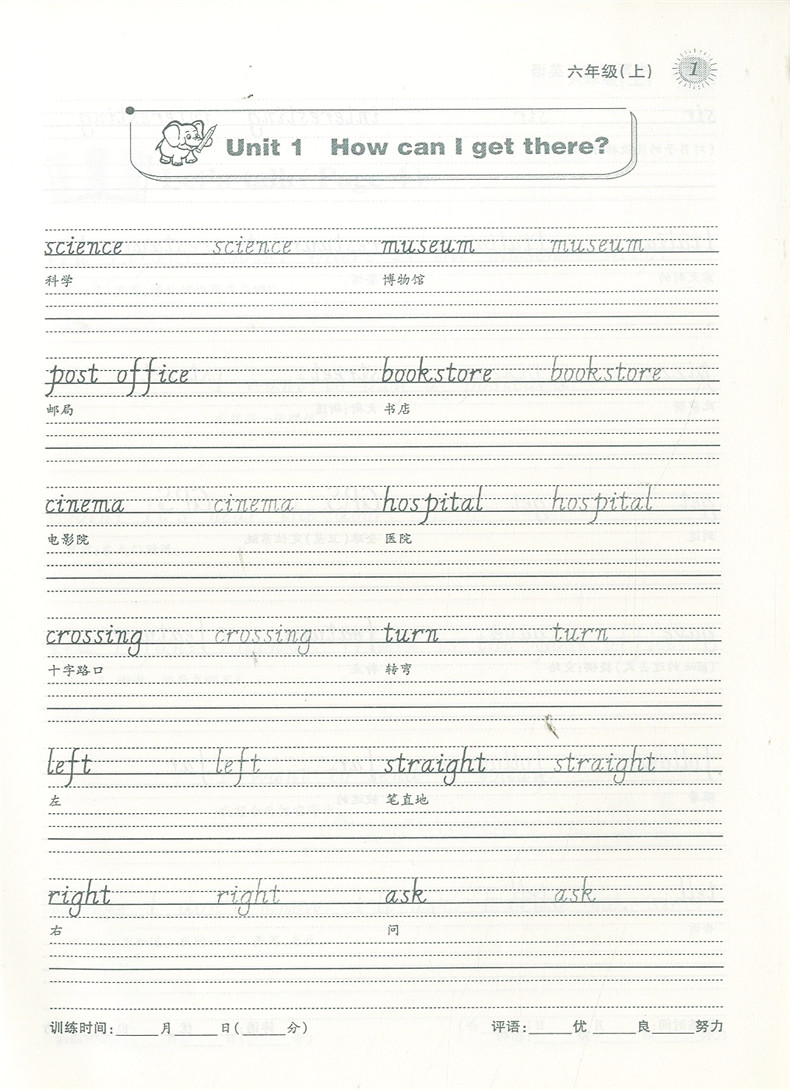 六年级(上) 1
Unit 1 How can I get there?
science science museum museum
科学 博物馆
post office bookstore bookstore
邮局 书店
cinema cinema hospital hospital
电影院 医院
crossing crossing turn turn
十字路口 转弯
left left straight straight
左 笔直地
right right ask ask
右 问
训练时间:_____月_____日(_____分) 评语:_____优_____良_____努力